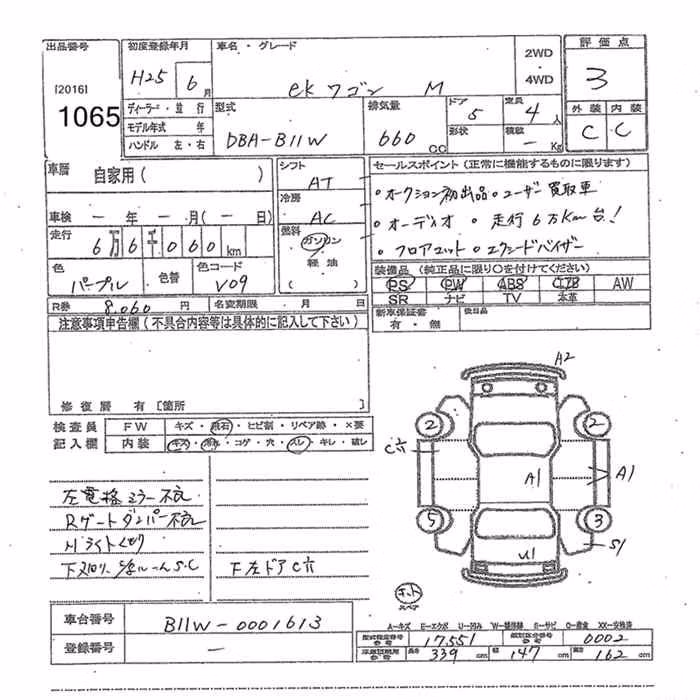 出品番号
[2016]
1065
初度登録年月
H25 6月
ディーラー・並行
モデル年式 年
ハンドル 左・右
車名・グレード
ekワゴン M
2WD
・
4WD
型式
DBA-B11W
排気量
660cc
ドア
5
形状
定員
4人
積載
－Kg
評価点
3
外装 内装
C C
車歴
自家用( )
車検 － 年 － 月( － 日)
走行
6万6千060km
色
パープル
色替
色コード
V09
シフト
AT
冷房
AC
燃料
ガソリン
軽油
( )
セールスポイント(正常に機能するものに限ります)
・オークション初出品・ユーザー買取車
・オーディオ ・走行6万Km台!
・フロアマット・エクシードバイザー
装備品(純正品に限り〇を付けてください)
PS PW ABS エアB AW
SR ナビ TV 本革
R券 8,060円 名変期限 月 日
新車保証書
有・無
後日品
注意事項申告欄(不具合内容等は具体的に記入して下さい)
修復歴 有[箇所 ]
検査員
記入欄
FW キズ・飛石・ヒビ割・リペア跡・×要
内装 キズ・汚れ・コゲ・穴・スレ・キレ・破レ
左電格ミラー不良
Rゲートダンパー不良
Hライトくもり
下廻り、S・C
F左ドアC穴
A2
2 2
C穴
A1
A1
5 3
U1
S1
スペア
車台番号 B11W-0001613
登録番号 －
A-キズ E-エクボ U-凹み W-補修跡 S-サビ C-腐食 XX-交換済
型式指定番号
参考
17551
類別区分番号
参考
0002
長さ 339cm 幅 147cm 高さ 162cm